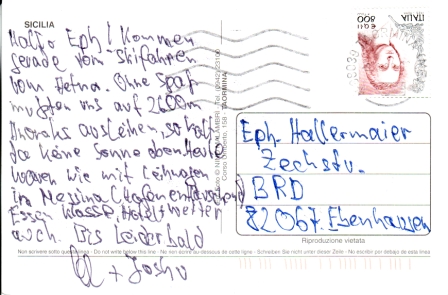 SICILIA
Hallo Eph! Kommen
gerade vom Skifahren
vom Aetna. Ohne Spaß
mußten uns auf 2600m
Anoraks ausleihen, so kalt
da keine Sonne oben Heute
waren wir mit Leihwagen
in Messina
Essen klasse, Hotel + Wetter
auch. Bis leider bald
+ Joshu
ITALIA
800
Eph. Hallermaier
Zechstr.
BRD
82067 Ebenhausen
Riproduzione vietata
Non scrivere sotto - Do not write below this line - Ne rien écrire au-dessous de cette ligne - Schreiben Sie nicht unter dieser Zeile - No escribir por debajo de esta línea